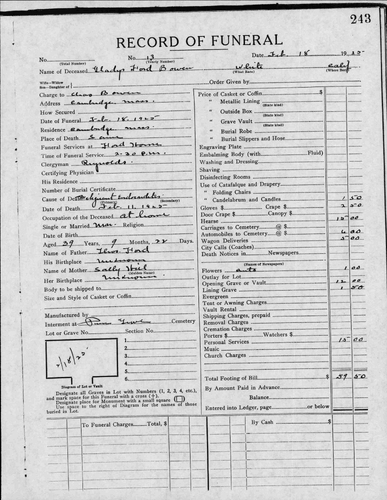 243
RECORD OF FUNERAL
No. No. 13 Date Feb. 18 1925
(Total Number) (Yearly Number)
Name of Deceased Gladys Ford Bowen White
(What Race) (Where Born)
Wife—Widow
Son—Daughter of
Charge to Chas Bowen
Address Cambridge Mass.
How Secured
Date of Funeral Feb. 18, 1925
Residence Cambridge Mass
Place of Death Same
Funeral Services at Ford Home
Time of Funeral Service 2:30 P.M.
Clergyman Reynolds
Certifying Physician
His Residence
Number of Burial Certificate
Cause of Death
Date of Death Feb. 11, 1925
Occupation of the Deceased At home
Single or Married Mar. Religion
Date of Birth
Aged 39 Years, 9 Months, 22 Days.
Name of Father Thos. Ford
His Birthplace Unknown
Name of Mother Sally Hill
Her Birthplace Unknown
Body to be shipped to
Size and Style of Casket or Coffin
Manufactured by
Interment at Cemetery
Lot or Grave No. Section No.
1.
2.
3.
4.
5.
6.
7.
Diagram of Lot or Vault
Designate all Graves in Lot with Numbers (1, 2, 3, 4, etc.),
and mark space for this Funeral with a cross (+).
Designate place for Monument with a small square
Use space to the right of Diagram for the names of those
buried in Lot.
Order Given by
Price of Casket or Coffin $
" Metallic Lining
(State Kind)
" Outside Box
(State Kind)
" Grave Vault
(State Kind)
" Burial Robe
" Burial Slippers and Hose
Engraving Plate
Embalming Body (with Fluid)
Washing and Dressing
Shaving
Disinfecting Rooms
Use of Catafalque and Drapery
" Folding Chairs
" Candelabrum and Candles 1 50
Gloves $ Crape $ 2 50
Door Crape $ Canopy $
Hearse 15 00
Carriages to Cemetery @ $
Automobiles to Cemetery @ $ 6 00
Wagon Deliveries 5 00
City Calls (Coaches)
Death Notices in Newspapers
(Names of Newspapers)
Flowers 1 00
Outlay for Lot
Opening Grave or Vault 12 00
Lining Grave 1 50
Evergreen
Tent or Awning Charges
Vault Rental
Shipping Charges, prepaid
Removal Charges
Cremation Charges
Porters $ Watchers $
Personal Services 15 00
Music
Church Charges
Total Footing of Bill $ 59 50
By Amount Paid in Advance
Balance
Entered into Ledger, page or below
To Funeral Charges Total, $ By Cash $